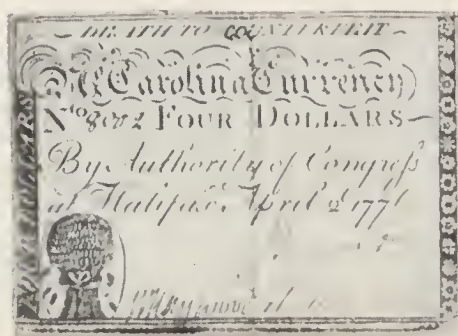 DEATH TO COUNTERFEIT
N. Carolina Currency
No FOUR DOLLARS
By Authority of Congreſs
at Halifax. April 2d 1776
FOUR DOLLARS